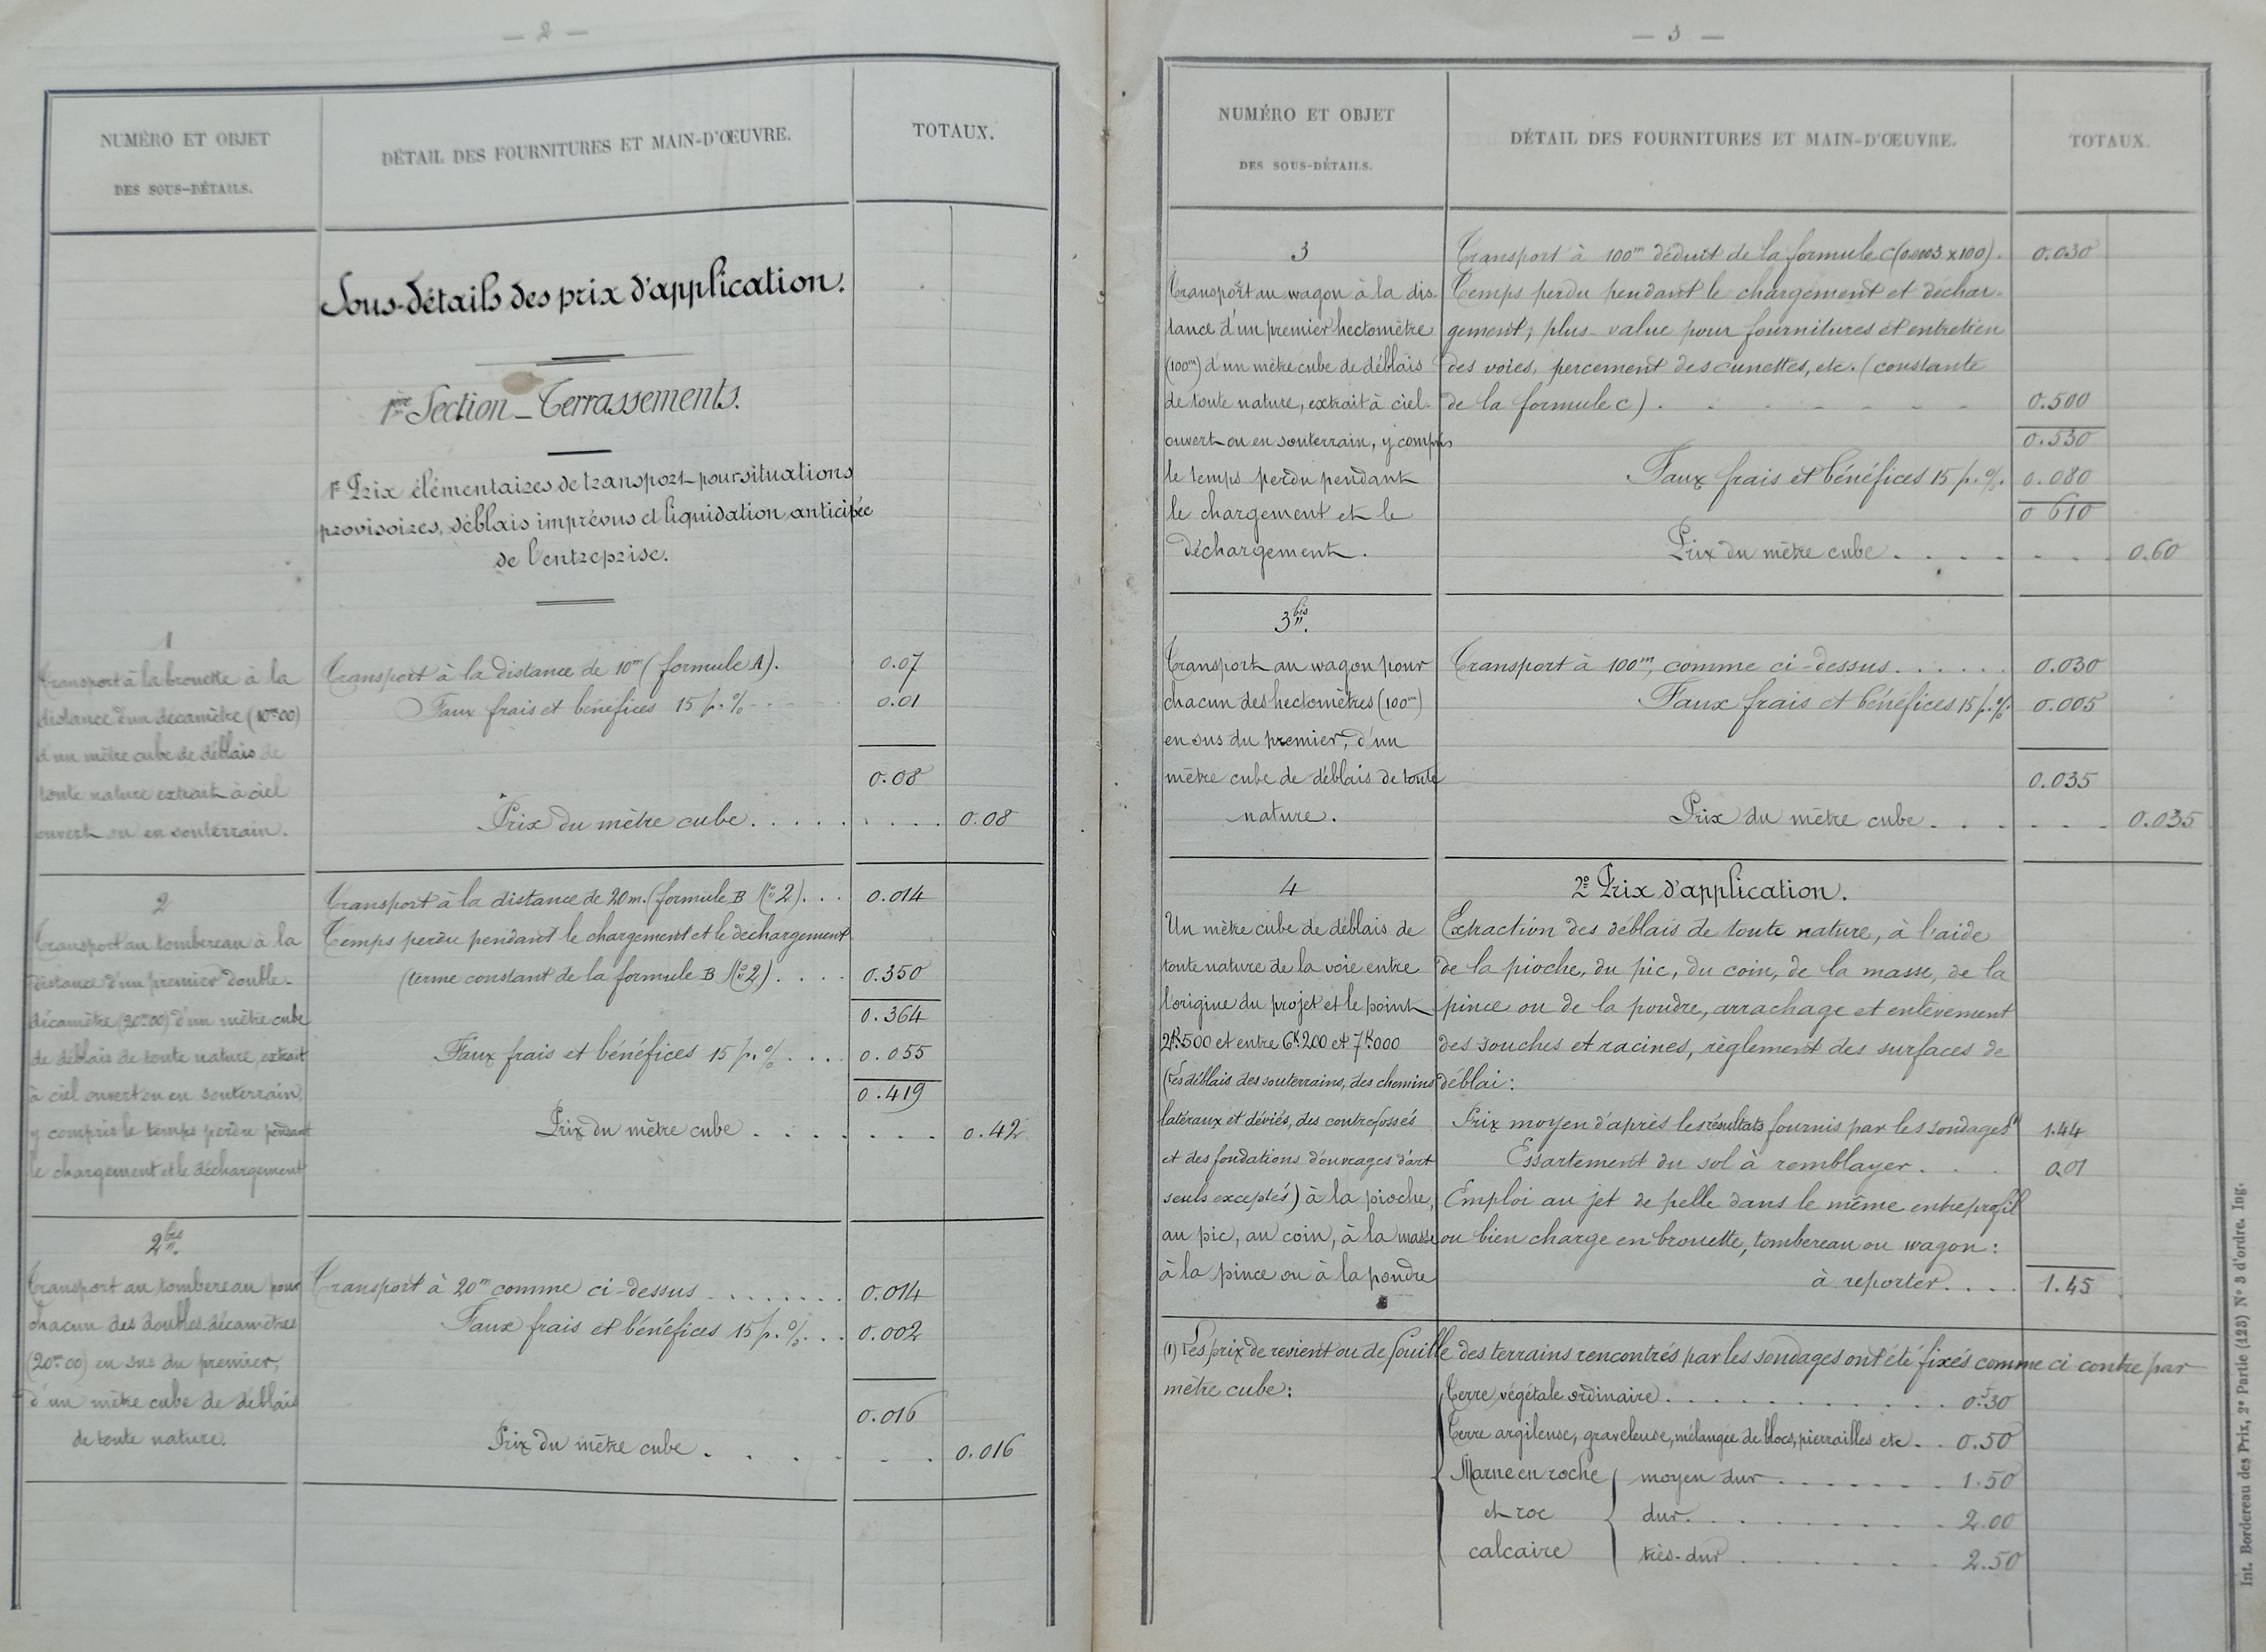 — 2 —
NUMÉRO ET OBJET
DES SOUS-DÉTAILS.
DÉTAIL DES FOURNITURES ET MAIN-D'ŒUVRE.
TOTAUX.
Sous-détails des prix d'application.
1ère Section _ Terrassements.
1° Prix élémentaires de transport pour situations
provisoires, déblais imprévus et liquidation anticipée
de l'entreprise.
1
Transport à la brouette à la
distance d'un décamètre (10m00)
d'un mètre cube de déblais de
toute nature extrait à ciel
ouvert ou en souterrain.
Transport à la distance de 10m (formule A). 0.07
Faux frais et bénéfices 15 p. % 0.01
0.08
Prix du mètre cube . . . . . 0.08
2
Transport au tombereau à la
distance d'un premier double-
décamètre (20m00) d'un mètre cube
de déblais de toute nature, extrait
à ciel ouvert ou en souterrain,
y compris le temps perdu pendant
le chargement et le déchargement
Transport à la distance de 20m. (formule B N°2) . . . 0.014
Temps perdu pendant le chargement et le déchargement
(terme constant de la formule B N°2) . . . . 0.350
0.364
Faux frais et bénéfices 15 p. % . . . . 0.055
0.419
Prix du mètre cube . . . . . . . 0.42
2bis.
Transport au tombereau pour
chacun des doubles-décamètres
(20m00) en sus du premier,
d'un mètre cube de déblais
de toute nature.
Transport à 20m comme ci-dessus . . . . . . . 0.014
Faux frais et bénéfices 15 p. % . . . 0.002
0.016
Prix du mètre cube . . . . . . 0.016
— 3 —
NUMÉRO ET OBJET
DES SOUS-DÉTAILS.
DÉTAIL DES FOURNITURES ET MAIN-D'ŒUVRE.
TOTAUX.
3
Transport au wagon à la dis-
tance d'un premier hectomètre
(100m) d'un mètre cube de déblais
de toute nature, extrait à ciel-
ouvert ou en souterrain, y compris
le temps perdu pendant
le chargement et le
déchargement.
Transport à 100m déduit de la formule C (0.0003 x 100) . 0.030
Temps perdu pendant le chargement et déchar-
gement, plus-value pour fournitures et entretien
des voies, percement des cunettes, etc. (constante
de la formule C) . . . . . . . 0.500
0.530
Faux frais et bénéfices 15 p. %. 0.080
0 610
Prix du mètre cube . . . . . . . 0.60
3bis.
Transport au wagon pour
chacun des hectomètres (100m)
en sus du premier, d'un
mètre cube de déblais de toute
nature.
Transport à 100m, comme ci-dessus . . . . . . 0.030
Faux frais et bénéfices 15 p. % 0.005
0.035
Prix du mètre cube . . . . . . 0.035
4
Un mètre cube de déblais de
toute nature de la voie entre
l'origine du projet et le point
2K.500 et entre 6K.200 et 7K.000
(les déblais des souterrains, des chemins
latéraux et déviés, des contrefossés
et des fondations d'ouvrages d'art
seuls exceptés) à la pioche,
au pic, au coin, à la masse
à la pince ou à la poudre
2° Prix d'application.
Extraction des déblais de toute nature, à l'aide
de la pioche, du pic, du coin, de la masse, de la
pince ou de la poudre, arrachage et enlèvement
des souches et racines, règlement des surfaces de
déblai :
Prix moyen d'après les résultats fournis par les sondages (1) 1.44
Essartement du sol à remblayer . . . 0.01
Emploi au jet de pelle dans le même entreprofil
ou bien charge en brouette, tombereau ou wagon :
à reporter . . . . 1.45
(1) Les prix de revient ou de fouille des terrains rencontrés par les sondages ont été fixés comme ci contre par
mètre cube :
Terre végétale ordinaire . . . . . . . . . . . 0f.30
Terre argileuse, graveleuse, mélangée de blocs, pierrailles etc . . 0.50
Marne en roche
et roc
calcaire
moyen dur . . . . . . . . 1.50
dur . . . . . . . . . 2.00
très-dur . . . . . . . . 2.50
Int. Bordereau des Prix, 2e Partie (123) N° 3 d'ordre. Ing.